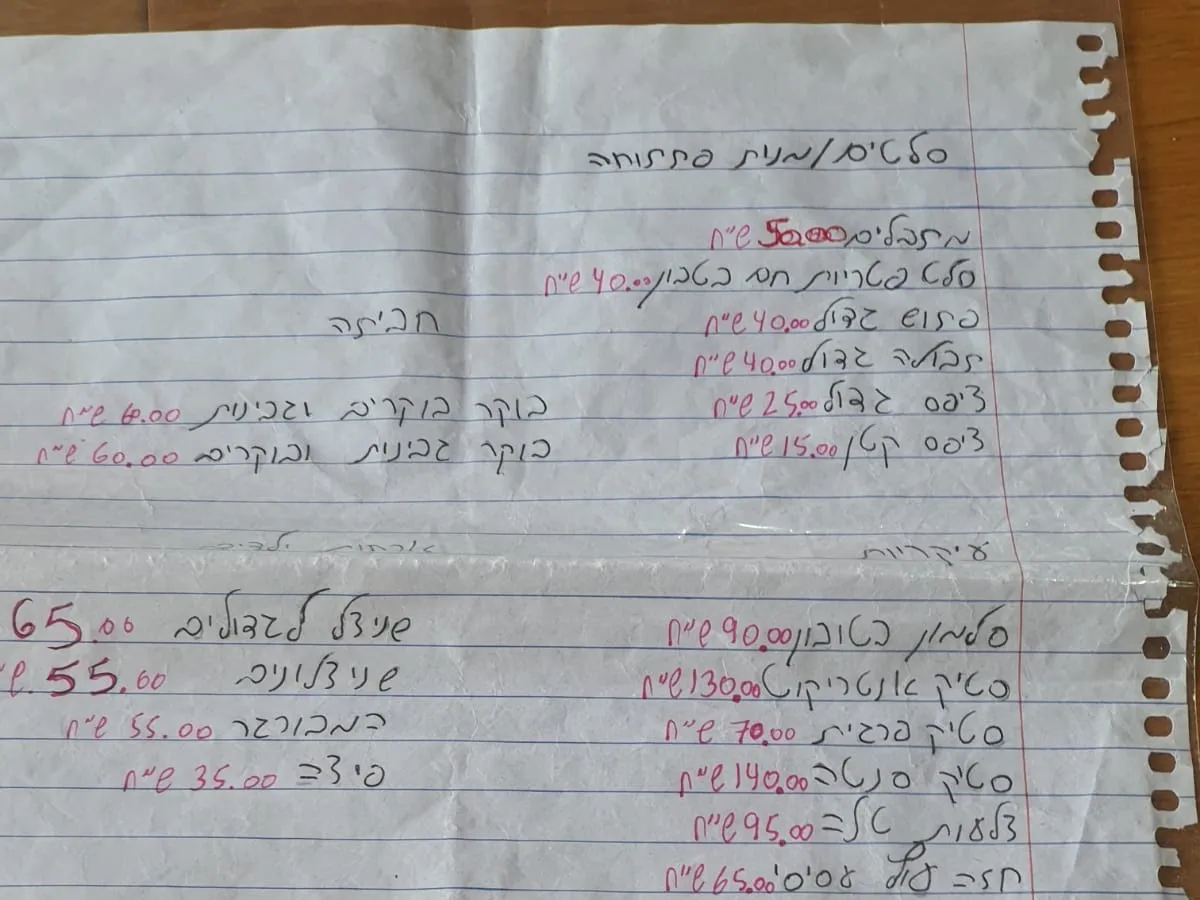 סלטים/מנית פתתוחה
מתבלים 50.00 ש״ח
סלט פטריות חם בטבון 40.00 ש״ח
פתוש גדול 40.00 ש״ח
תבולה גדול 40.00 ש״ח
ציפס גדול 25.00 ש״ח
ציפס קטן 15.00 ש״ח
חביתה
בוקר בוקרים וגבינות 60.00 ש״ח
בוקר גבינות ובוקרים 60.00 ש״ח
עיקריות
סלמון בטובון 90.00 ש״ח
סטיק אנטריקוט 130.00 ש״ח
סטיק פרגית 70.00 ש״ח
סטיק סנטה 140.00 ש״ח
צלעות טלה 95.00 ש״ח
חזה עוף עסיסי 65.00 ש״ח
ארוחות ילדים
שניצל לגדולים 65.00
שניצלונים 55.00 ש
המבורגר 55.00 ש״ח
פיצה 35.00 ש״ח